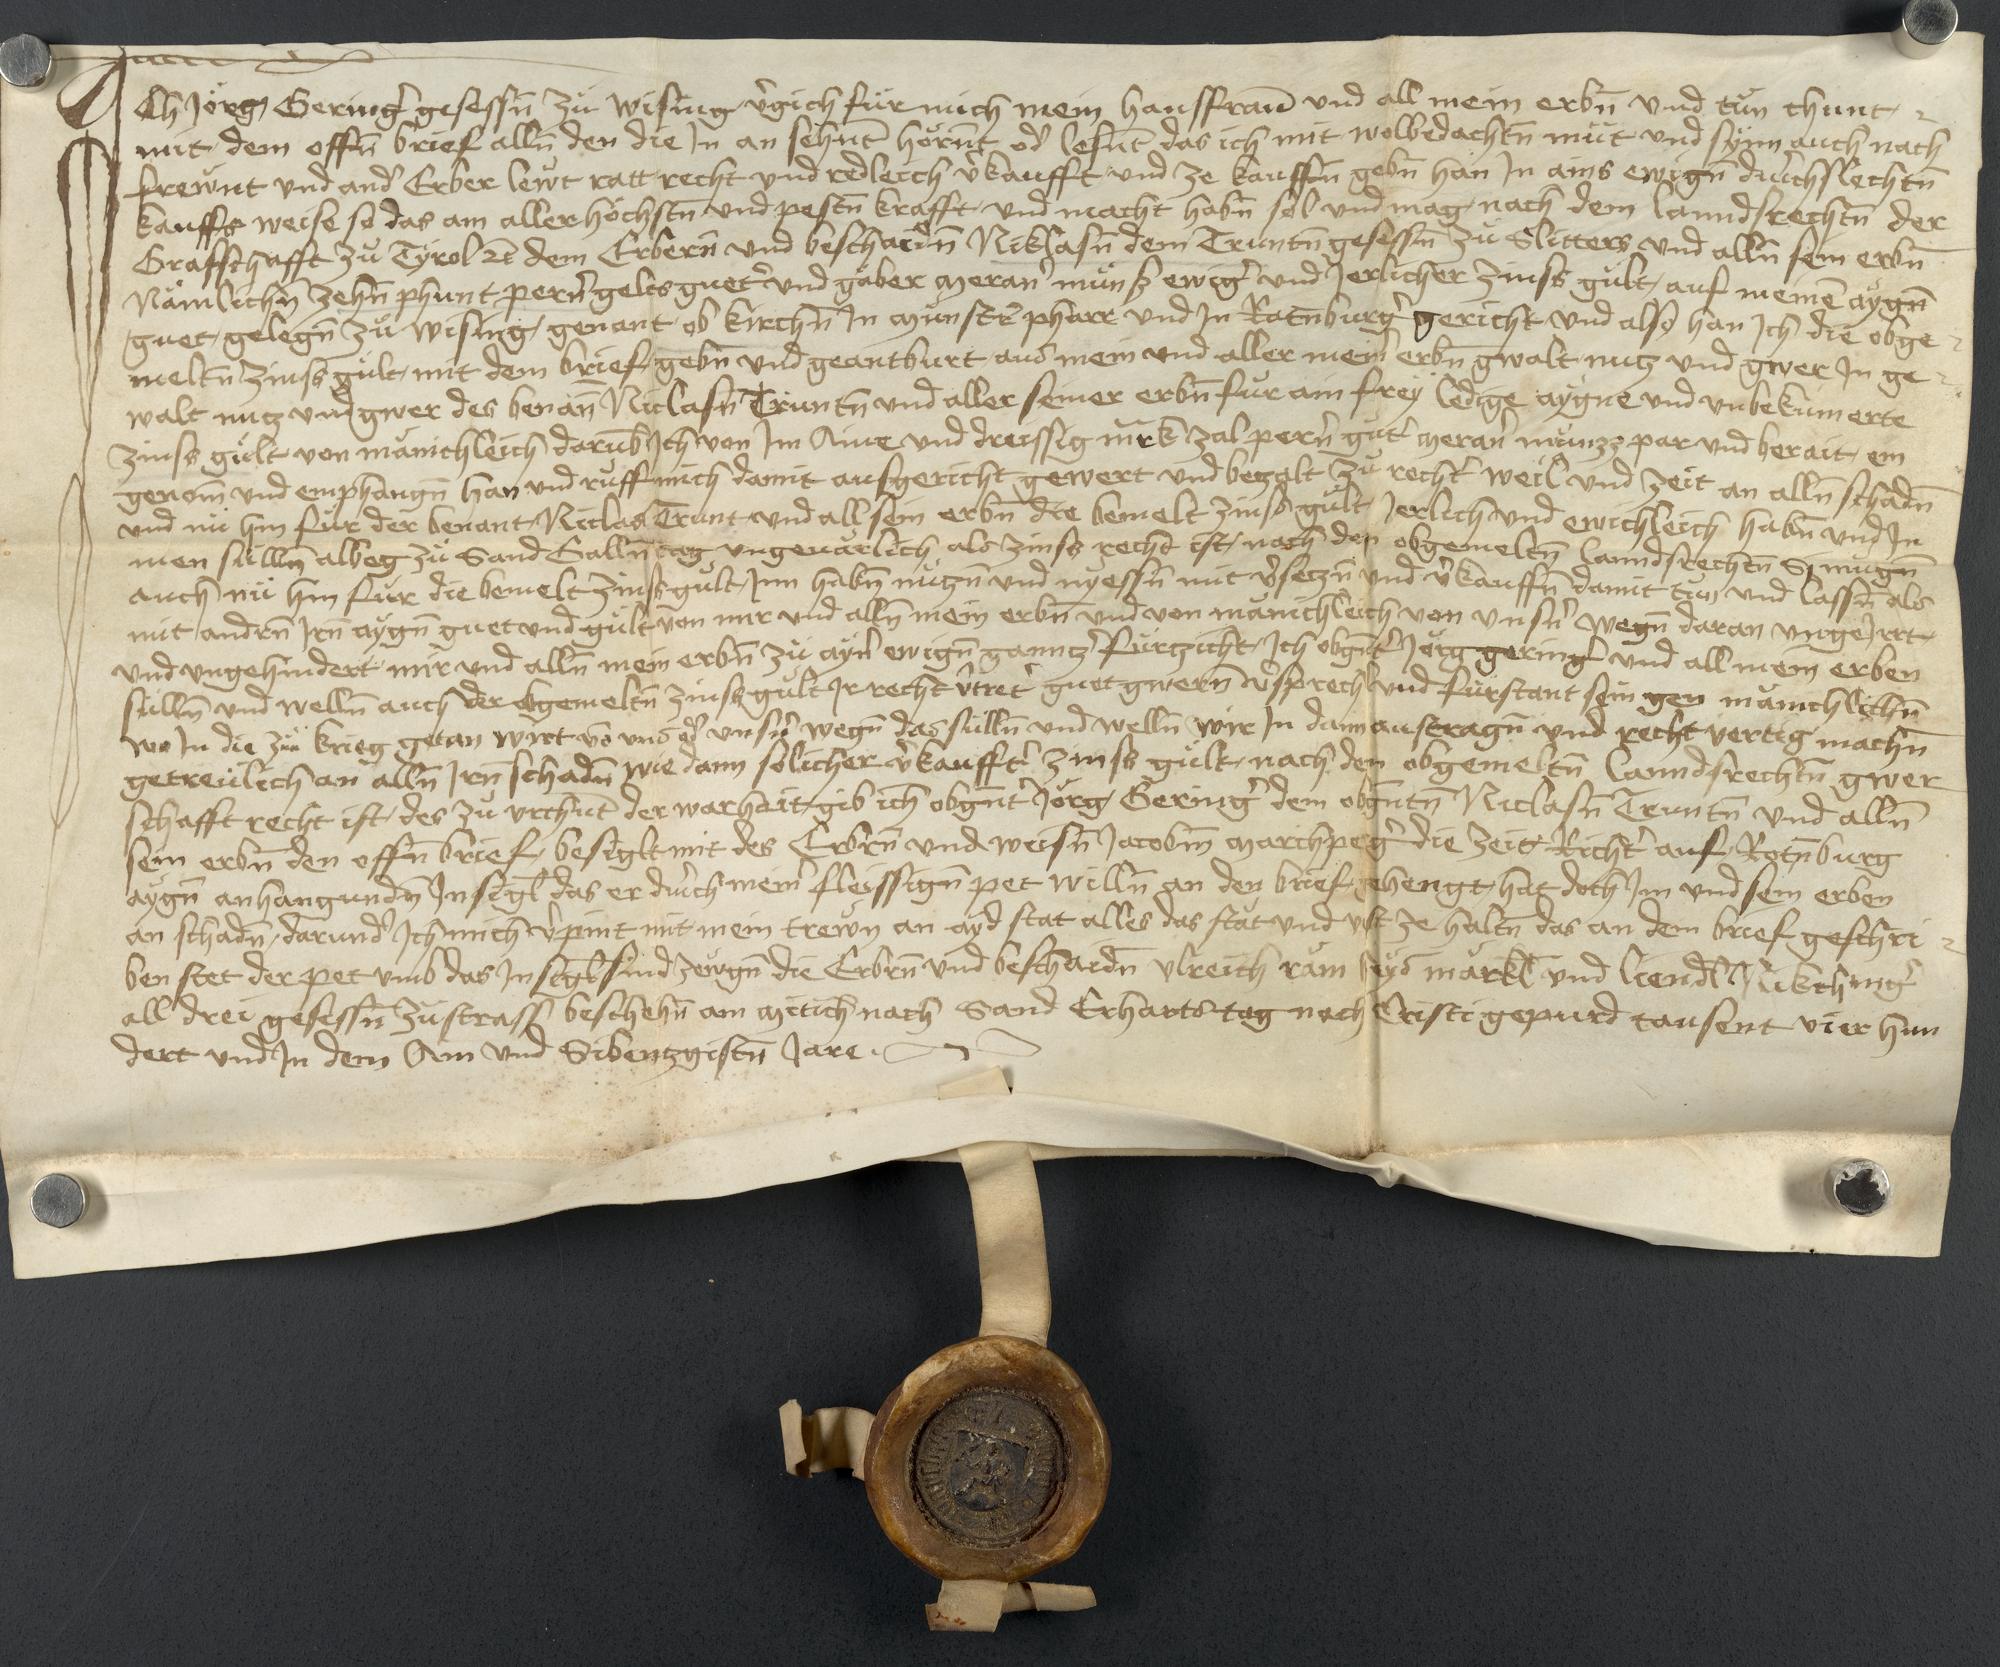 Ich Jörg Geringˀ gesessn̄ zu Wising vˀgich für mich mein hausffraw̄ und all mein erbn̄ und tůn chunt
mit dem offn̄ brief alln̄ den die In an sehnt hörn̄t odˀ lesn̄t das ich mit wolbedachtn̄ můt und synn auch nach
frewnt und andˀ Erber lewt ratt recht und redleich vˀkaufft und ze kauffn̄ gebn̄ han In ains ewign̄ durchslechtn̄
kauffs weise so das am allerhöchstn̄ und pestn̄ krafft und macht habn̄ sol und mag nach dem lanndsrechtn̄ der
Grafschafft zu Tyrol ꝛc dem Erbern̄ und beschaidn̄ Niklasn̄ dem Truntn̄ gesessn̄ zu Slitters und alln̄ sein erbn̄
Nämlichn̄ zehn̄ phunt pernˀ gelts guetˀ und gäber Meranˀ münß ewigˀ und Jerlicher zinss gült auf meinē aygn̄
guet gelegn̄ zu Wising genant ob kirchn̄ In Münstrˀ pharr und In Rotn̄burgˀ gericht und also han Ich die obge
meltn̄ zinss gült mit dem brief gebn̄ und geantburt aus mein und aller meinˀ erbn̄ gwalt nutz und gwer In ge
walt nutz und gwer des benan̄ Niclasn̄ Truntn̄ und aller seiner erbn̄ für ain frey ledige aygne und unbekumerte
zinss gült von mänichleich darub̄ Ich von Im Aine und dreissig mrk zal pernˀ gutˀ Meranˀ münzz par und berait ein
genom̄ und emphangn̄ han und růff mich damit ausgericht gewert und bezalt zu rechtˀ weil und zeit an alln̄ schadn̄
und nü hin für der benant Niclas Trunt und all sein erbn̄ die bemelt zinss gült Jerlich und ewichleich habn̄ und In
men sülln̄ albeg zu Sand Galln̄ tag ungeuärlich als zinss recht ist nach den obgemeltn̄ lanndsrechtn̄ Si mugn̄
auch nü hin für die bemelt zinss gült Inn habn̄ nützn̄ und nyessn̄ mit vˀsetzn̄ und vˀkauffn̄ damit tůn und lassn̄ als
mit andrn̄ Irn̄ aygn̄ guet und gült von mir und alln̄ mein erbn̄ und von mänichleich von unsnˀ wegn̄ daran ungeIrrt
und ungehindert mir und alln̄ mein erbn̄ zu aynˀ ewign̄ ganntzˀ fürtzicht Ich obgn̄tˀ Jörg geringˀ und all mein erben
sülln̄ und welln̄ auch der obgemeltn̄ zinss gült Ir recht vˀtretˀ guet gwern̄ vˀsprechˀ und fürstant sein gen mänichlichn̄
wo In die zu krieg getan wirt vō uns odˀ unsnˀ wegn̄ das sülln̄ und welln̄ wir In dann austragn̄ und recht vertig machn̄
getreülich an alln̄ Irn̄ schadn̄ wie dann solicher vˀkaufftˀ zinss gült nach den obgemeltn̄ lanndsrechtn̄ gwer
schafft recht ist des zu urchūt der warhait gib ich obgn̄tˀ Jörg Geringˀ dem obgn̄tn̄ Niclasn̄ Truntn̄ und alln̄
sein erbn̄ den offn̄ brief besiglt mit des Erbrn̄ und weisn̄ Jacobm̄ Marchpegˀ die zeit Richtˀ auf Rotn̄burg
aygn̄ anhangundn̄ Insigl das er durch meinˀ fleissign̄ pet willn̄ an den brief gehengt hat doch Im und sein erben
an schadn̄ darundˀ Ich mich vˀpint mit mein trewn an ayd stat alles das stät und vest ze haltn̄ das an dem brief geschri
ben stet der pet umb das Insigl sind zewgn̄ die Erbrn̄ und beschaidn̄ Ulreich räm heys märkl und liendl
all drei gesessn̄ zu strass beschehn̄ am Mitich nach Sand Erharts tag nach Cristi gepurd tausent vier hun
dert und In dem Ain und Sibentzgistn̄ Jare